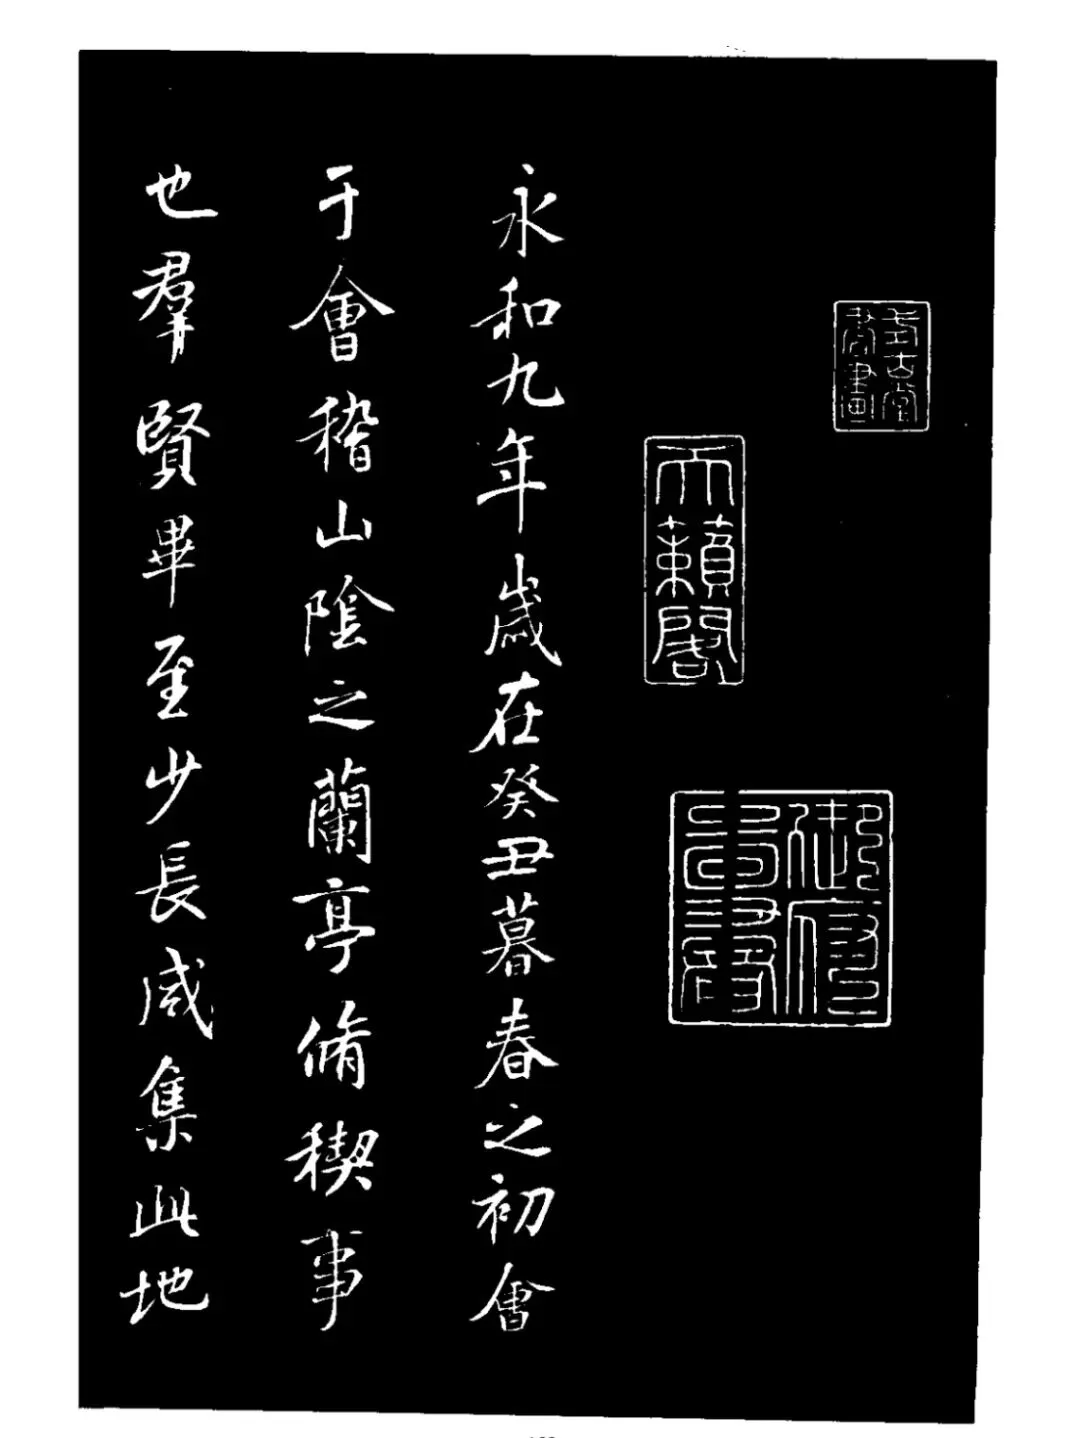 式古堂
書畫
天籟閣
御府
永和九年歲在癸丑暮春之初會
于會稽山陰之蘭亭脩稧事
也羣賢畢至少長咸集此地